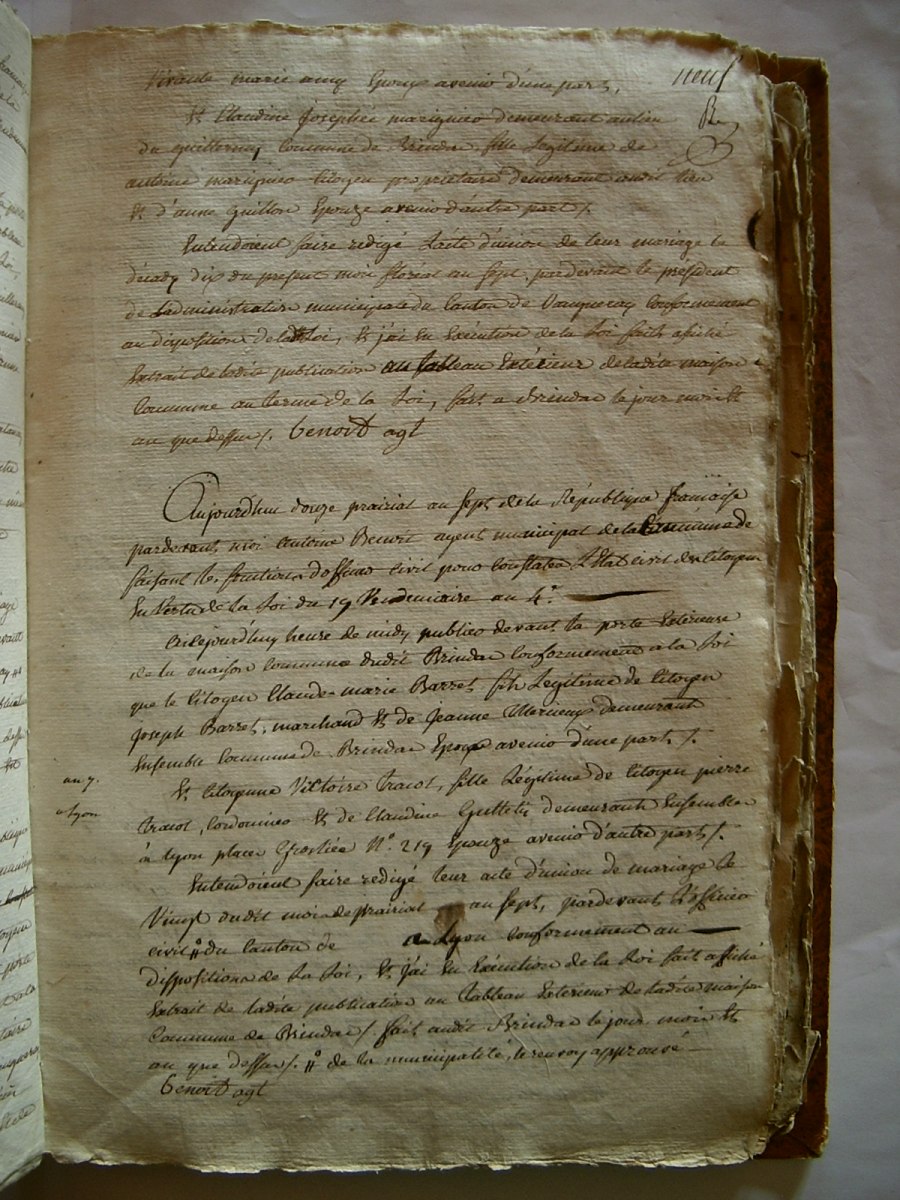 neuf
vivante marie anry Epoux avenir d'une part,
Et Claudine Josephée marignier demeurant au lieu
du guillermy, Commune de Brindas, fille Legitime de
antoine marignier Citoyen propriétaire demeurant audit lieu
Et d'anne Guillon Epouze avenir d'autre part /.
Entendoient faire redigé L'acte d'union de leur mariage le
décady dix du present mois floreal an Sept, pardevant le président
de L'administration municipale du Canton de Vaugneray Conformement
au disposition de la Loi, Et j'ai En Exécution de la Loi fait afiché
Extrait de ladite publication au tableau Extérieur de ladite maison
Commune au terme de la Loi, fait a Brindas le jour mois Et
an que dessus /. Benoit agt
Aujourdhui douze prairial an Sept de la République française
pardevant moi antoine Benoit agent municipal de la Commune de
faisant les fonctions d'officier civil pour Constater L'Etat civil des Citoyens
En Vertu de la Loi du 19 Vendemiaire an 4e.
Ai cejourd'huy heure de midy publier devant la porte Extérieure
de la maison Commune dudit Brindas Conformement a la Loi
que le Citoyen Claude marie Barret fils Legitime de Citoyen
Joseph Barret, marchand Et de Jeanne Merieux demeurant
Ensemble Commune de Brindas Epoux avenir d'une part /.
Et Citoyenne Victoire Tracol, fille Légitime de Citoyen pierre
an 7.
Tracol, Cordonnier Et de Claudine demeurants Ensemble
a Lyon
à Lyon place N.o 219 Epouze avenir d'autre part /.
Entendoient faire redigé leur acte d'union de mariage le
Vingt dudit mois de prairial an Sept, pardevant L'officier
civil # du Canton de a Lyon Conformement au
dispositions de la Loi, Et j'ai En Exécution de la Loi fait affiché
Extrait de ladite publication au Tableau Exterieur de ladite maison
Commune de Brindas /. fait audit Brindas le jour mois Et
an que dessus /. # de la municipalité, le renvoy approuvé
Benoit agt